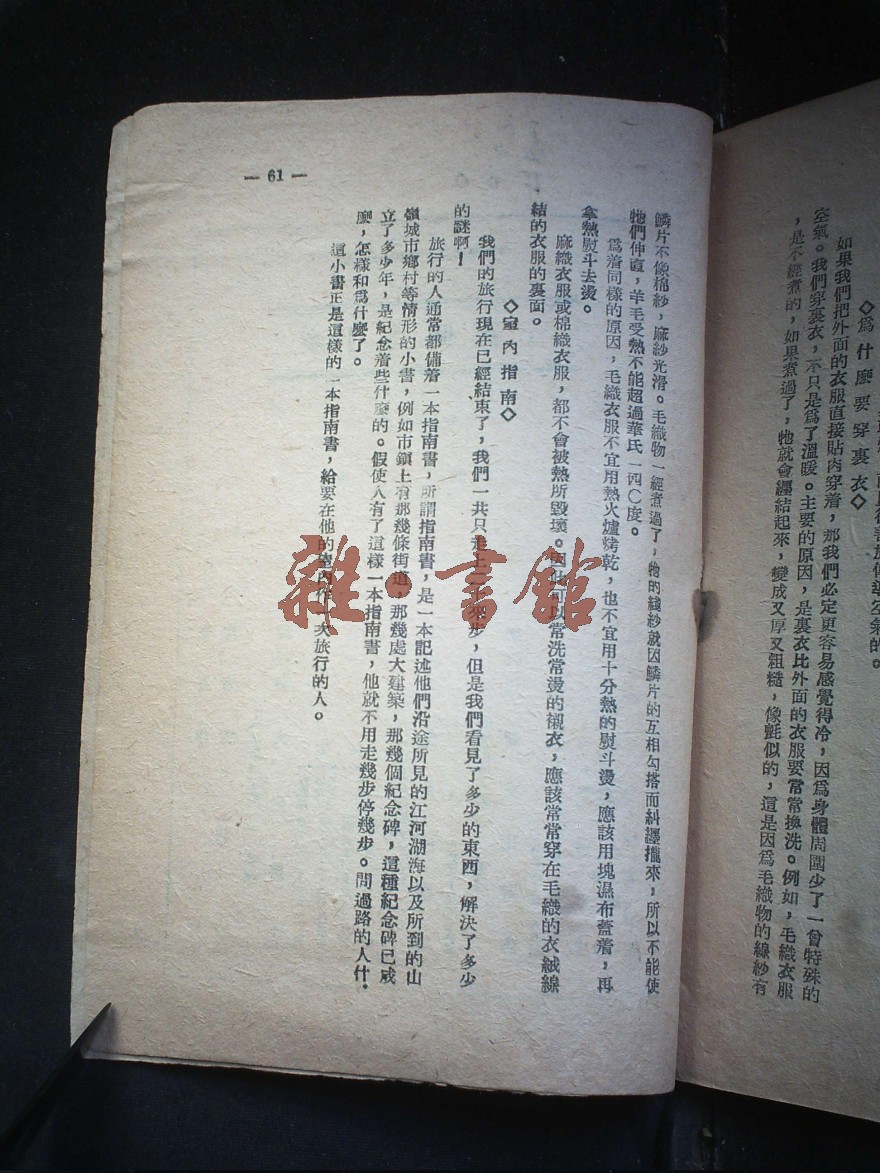 ◇爲什麽要穿裏衣◇
如果我們把外面的衣服直接貼肉穿着，那我們必定更容易感覺得冷，因爲身體周圍少了一曾特殊的
空氣。我們穿裏衣，不只是爲了溫暖。主要的原因，是裏衣比外面的衣服要常常換洗。例如，毛織衣服
，是不經煮的，如果煮過了，牠就會纒結起來，變成又厚又粗糙，像氈似的，這是因爲毛織物的線紗有
鱗片不像棉紗，麻紗光滑。毛織物一經煮過了，牠的綫紗就因鱗片的互相勾搭而糾纒攏來，所以不能使
牠們伸直，羊毛受熱不能超過華氏一四〇度。
爲着同樣的原因，毛織衣服不宜用熱火爐烤乾，也不宜用十分熱的熨斗燙，應該用塊濕布蓋着，再
拿熱熨斗去燙。
麻織衣服或棉織衣服，都不會被熱所毀壞。因此可以常洗常燙的襯衣，應該常常穿在毛織的衣絨線
結的衣服的裏面。
◇室內指南◇
我們的旅行現在已經結束了，我們一共只走上二十來步，但是我們看見了多少的東西，解決了多少
的謎啊！
旅行的人通常都備着一本指南書，所謂指南書，是一本記述他們沿途所見的江河湖海以及所到的山
嶺城市鄉村等情形的小書，例如市鎮上有那幾條街道，那幾處大建築，那幾個紀念碑，這種紀念碑已成
立了多少年，是紀念着些什麽的。假使人有了這樣一本指南書，他就不用走幾步停幾步。問過路的人什．
麽，怎樣和爲什麽了。
這小書正是這樣的一本指南書，給要在他的室內作一次旅行的人。
— 61 —
雜·書館